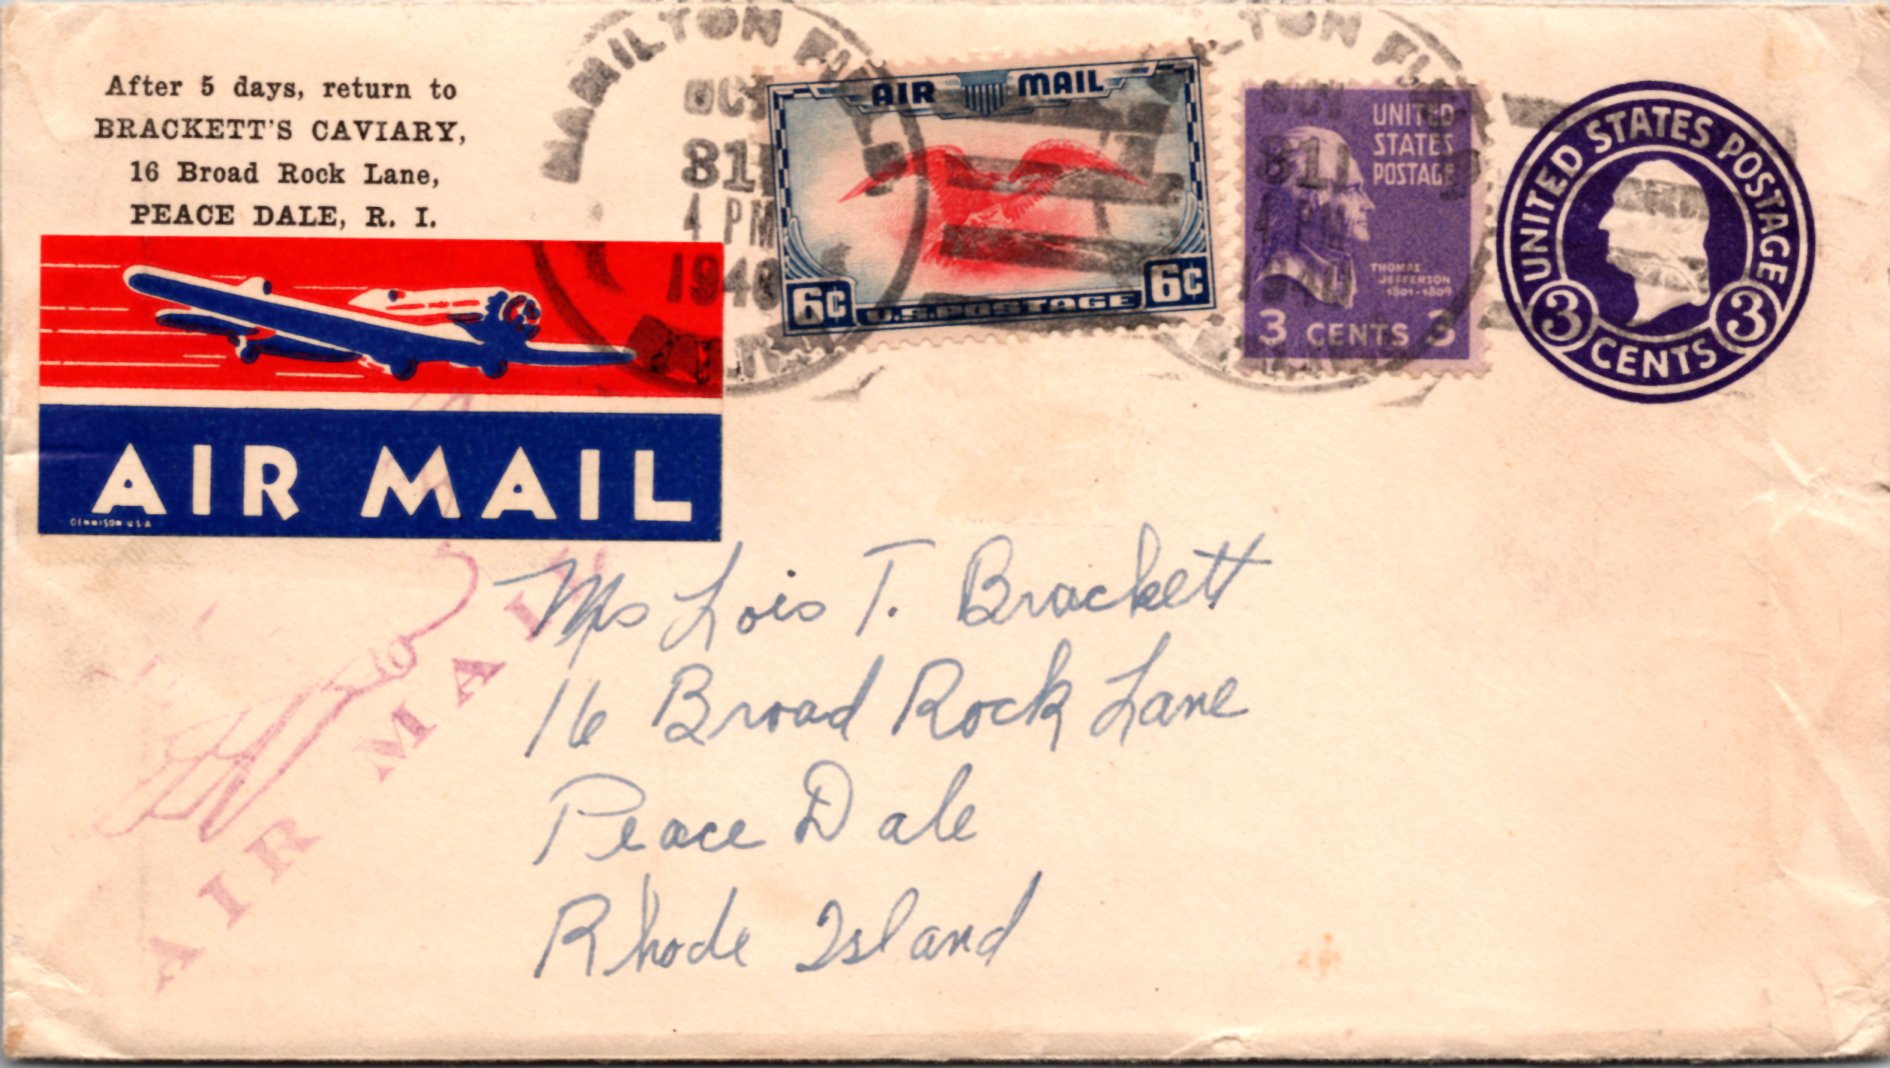 After 5 days, return to
BRACKETT'S CAVIARY,
16 Broad Rock Lane,
PEACE DALE, R. I.
AIR MAIL
DENNISON U.S.A.
HAMILTON
OCT
4 PM
AIR MAIL
6¢ U.S. POSTAGE 6¢
UNITED
STATES
POSTAGE
THOMAS
JEFFERSON
1801-1809
3 CENTS 3
UNITED STATES POSTAGE
3 CENTS 3
AIR MAIL
Mrs Lois T. Brackett
16 Broad Rock Lane
Peace Dale
Rhode Island